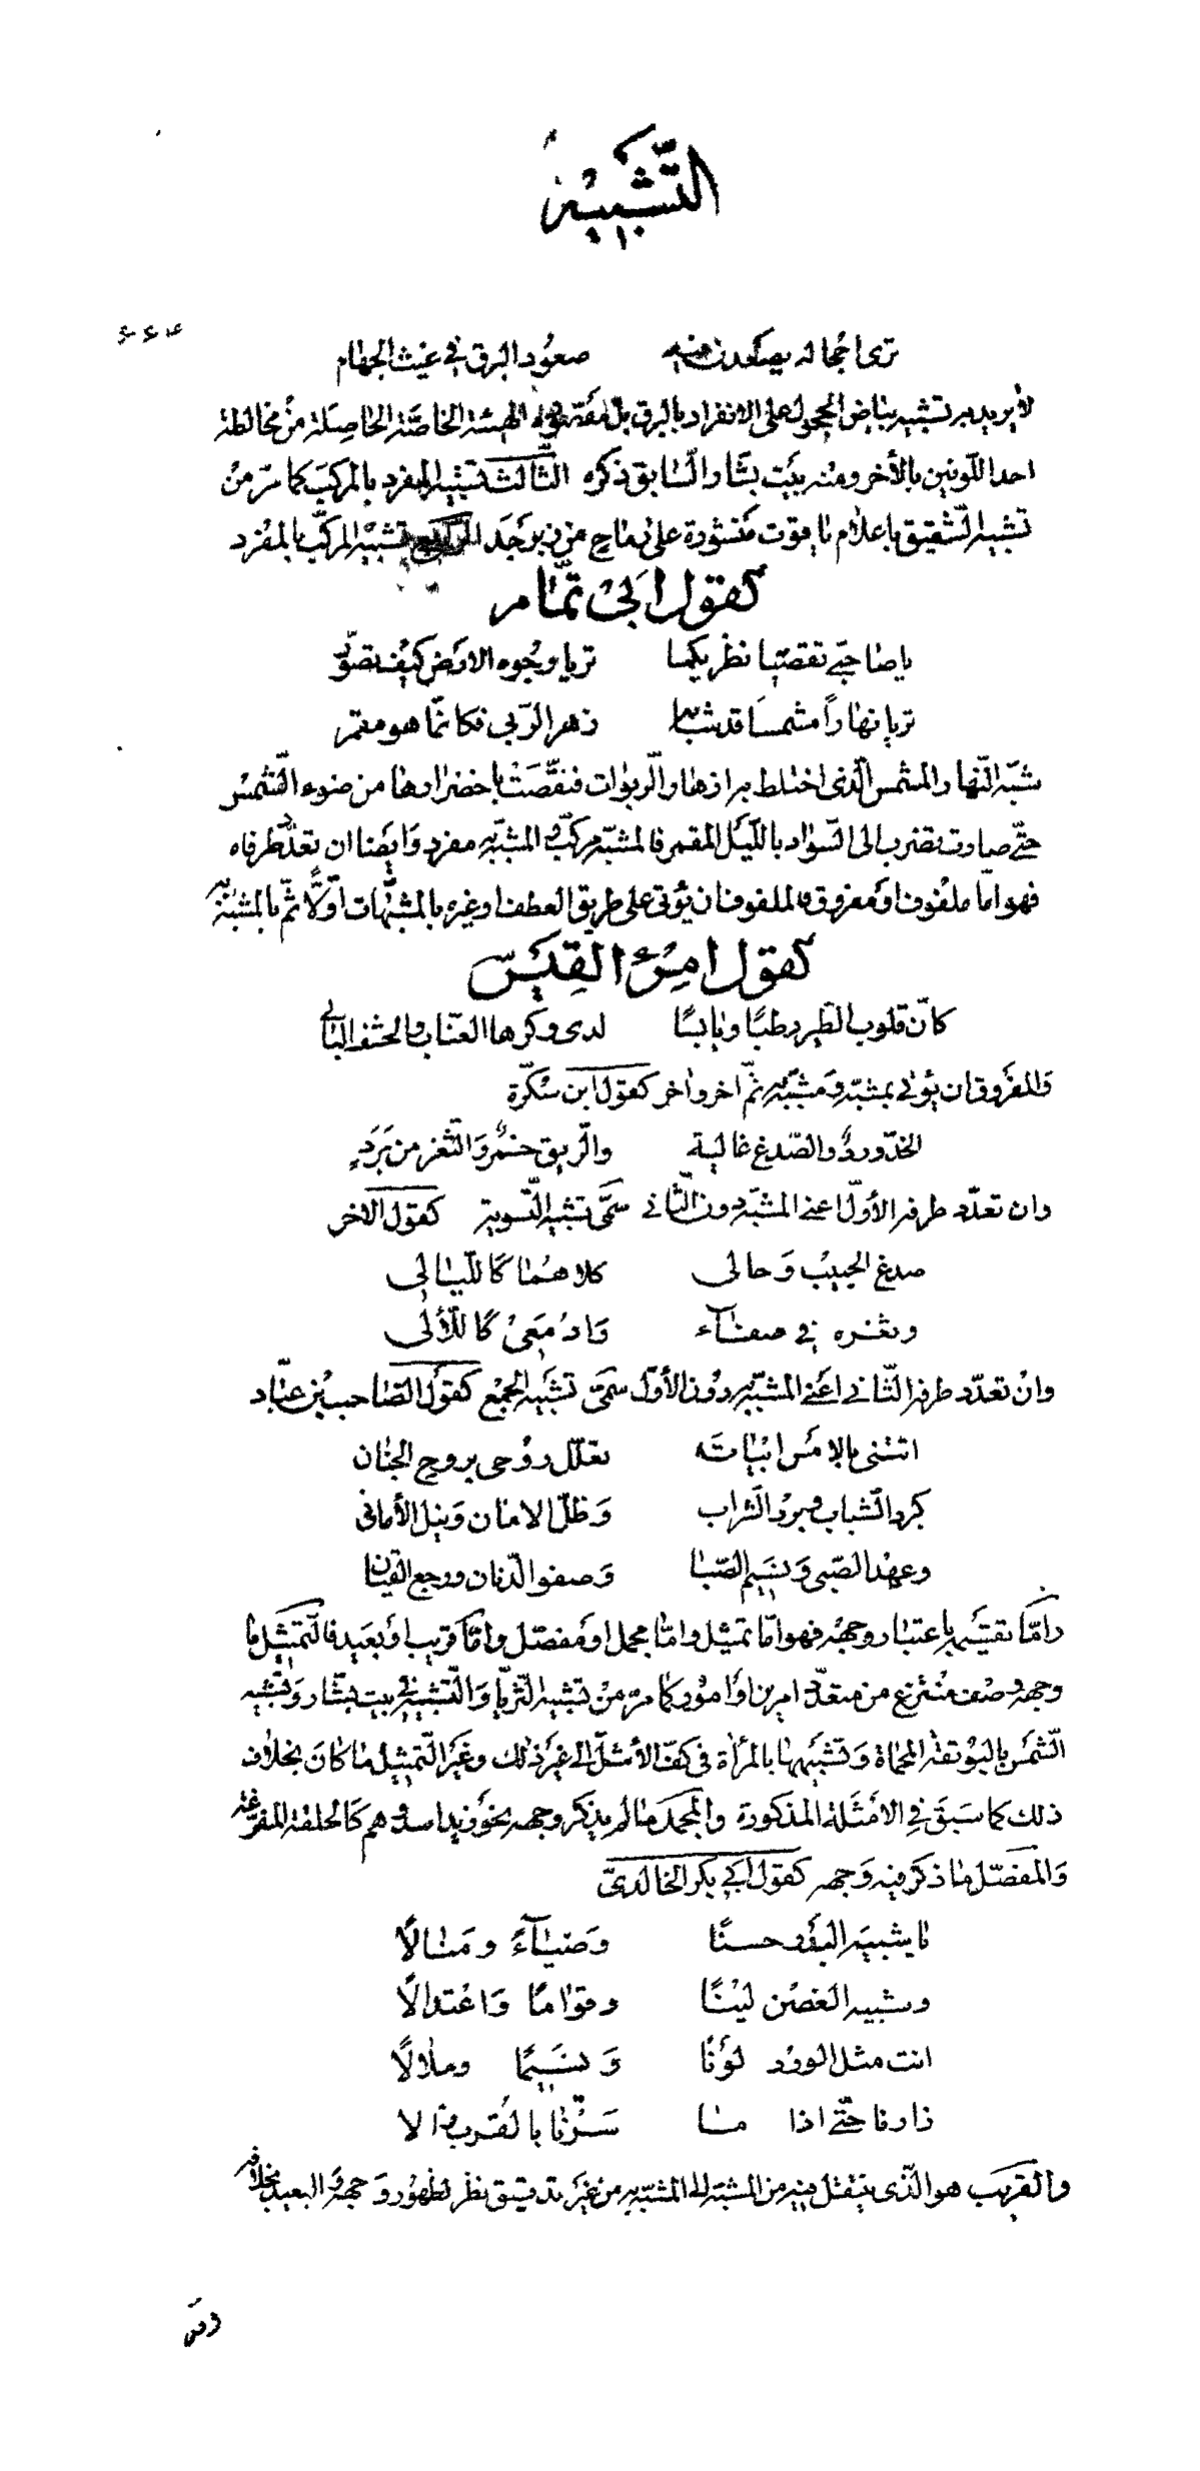 التَّشبيه
٦٤٤
ترى احجاله يصعدن فيه صعُود البرق في غيث الجهام
لا يريد به تشبيه بياض الحجول على الانفراد بالبرق بل مقصوده الهيئة الخاصّة الحاصِلة منْ مخالطة
احد اللّونين بالأخر ومنه بيَت بشّار السّابق ذكره الثّالث تشبيه المفرد بالمركّب كما مرّ منْ
تشبيه الشّقيق باعلام ياقوت منشورة على رماح من زبرجَد الرّابع تشبيْه المركّب بالمفرد
كقول ابَى تمّام
يا صاحبَّ تقصّيا نظريكما تريا وجُوه الارض كيْف تصوّر
تريا نهاراً مشمساً قد شابه زهر الرّبى فكانّما هو مقمر
شبّه النّهار المشمس الّذى اختلط به ازهار الرّبوات فنقّصَتْ باخضرارها من ضوء الشّمسْ
حتّى صارت تضرب الى السّواد باللّيْل المقمر فالمشبّه مركّب والمشبّه به مفرد وَايضا ان تعدّد طرفاه
فهو امّا ملفوف اوْ مفروق فالملفوف ان يُؤتى على طريق العطف او غيره بالمشبّهات اوّلاً ثمّ بالمشبّه به
كقول امرئ القيَسْ
كانّ قلوب الطّير رطبًا ويابسًا لدى وكرها العنّاب والحشف البالى
وَالمفرُوق ان يؤتى بمشبّه وَمشبّه به ثمّ اخر واخر كقول ابن سكّرة
الخدّ وردٌ والصّدغ غالية والرّيق خمْرٌ وَالثّغر من بَرَدٍ
وان تعدّد طرفه الأوّل اعنى المشبّه دون الثّانى سمّى تشبيه التّسوية كقول الاخر
صدغ الحبيبْ وَحالى كلاهُما كاللّيالى
وثغره في صفآء وَادْمعىْ كاللّألى
وانْ تعدّد طرفه الثّانى اعنى المشبّه به دوُن الأوّل سمّى تشبيه الجمْع كقول الصّاحب بْن عبّاد
اتتنى بالامْس ابيْاتَه تعلّل روُحى بروح الجنان
كبرد الشّباب وبرْد الشّراب وَظلّ الامان وَنيل الأمانى
وعهْد الصّبى وَنسَيم الصّبا وَصفو الدّنان ورجع القيان
وامّا تقسيمه باعتبار وجهْه فهو امّا تمثيل وامّا مجمل اوْ مفصّل وامّا قريب اوْ بعَيد فالتّمثيل ما
وجهه وصْف منْتزع من متعدّد امرين اوْ امُور كما مرّ منْ تشبيه الثّريّا وَالتّشبيه في بيت بشّار وَتشبيه
الشّمس بالبوْتقة المحماة وَتشبيهها بالمرْاة في كفّ الأشلّ الى غيرَ ذلك وغيَر التّمثيل ما كانَ بخلاف
ذلك كما سَبقَ في الامْثلة المذكورة والمجمل ما لم يذكر وجهه نحوْ زيد اسد وهم كالحلقة المفرغة
وَالمفصّل ما ذكر فيه وَجهه كقول ابي بكر الخالديّ
يا شبيه البدْر حسنًا وضيَآءً ومنالًا
وشبيه الغصْن ليْنًا وقوامًا وَاعْتدالًا
انت مثل الورْد لوْنًا وَنسَيمًا وملالًا
زارنا حتّى اذا ما سَرّنا بالقرب زالا
والقريَب هو الّذى ينتقل فيه من المشبّه الى المشبّه به من غيَر تدقيق نظر لظهُور وَجهه وَالبعيد بخلافه